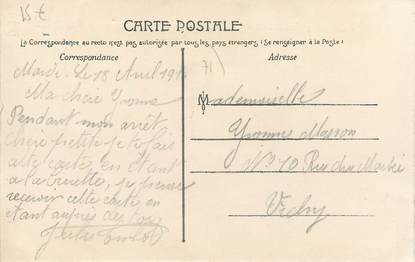 15 €
CARTE POSTALE
La Correspondance au recto n'est pas autorisée par tous les pays étrangers (Se renseigner à la Poste)
Correspondance
Adresse
71
Mardi Le 18 Avril 191
Ma chérie Yvonne
Pendant mon arrêt
Chérie petite je te fais
cette carte, en étant
a la je pense
recevoir cette carte en
étant auprès de toi
Jules
Mademoiselle
Yvonne Masson
No 10 Rue du Marché
Vichy